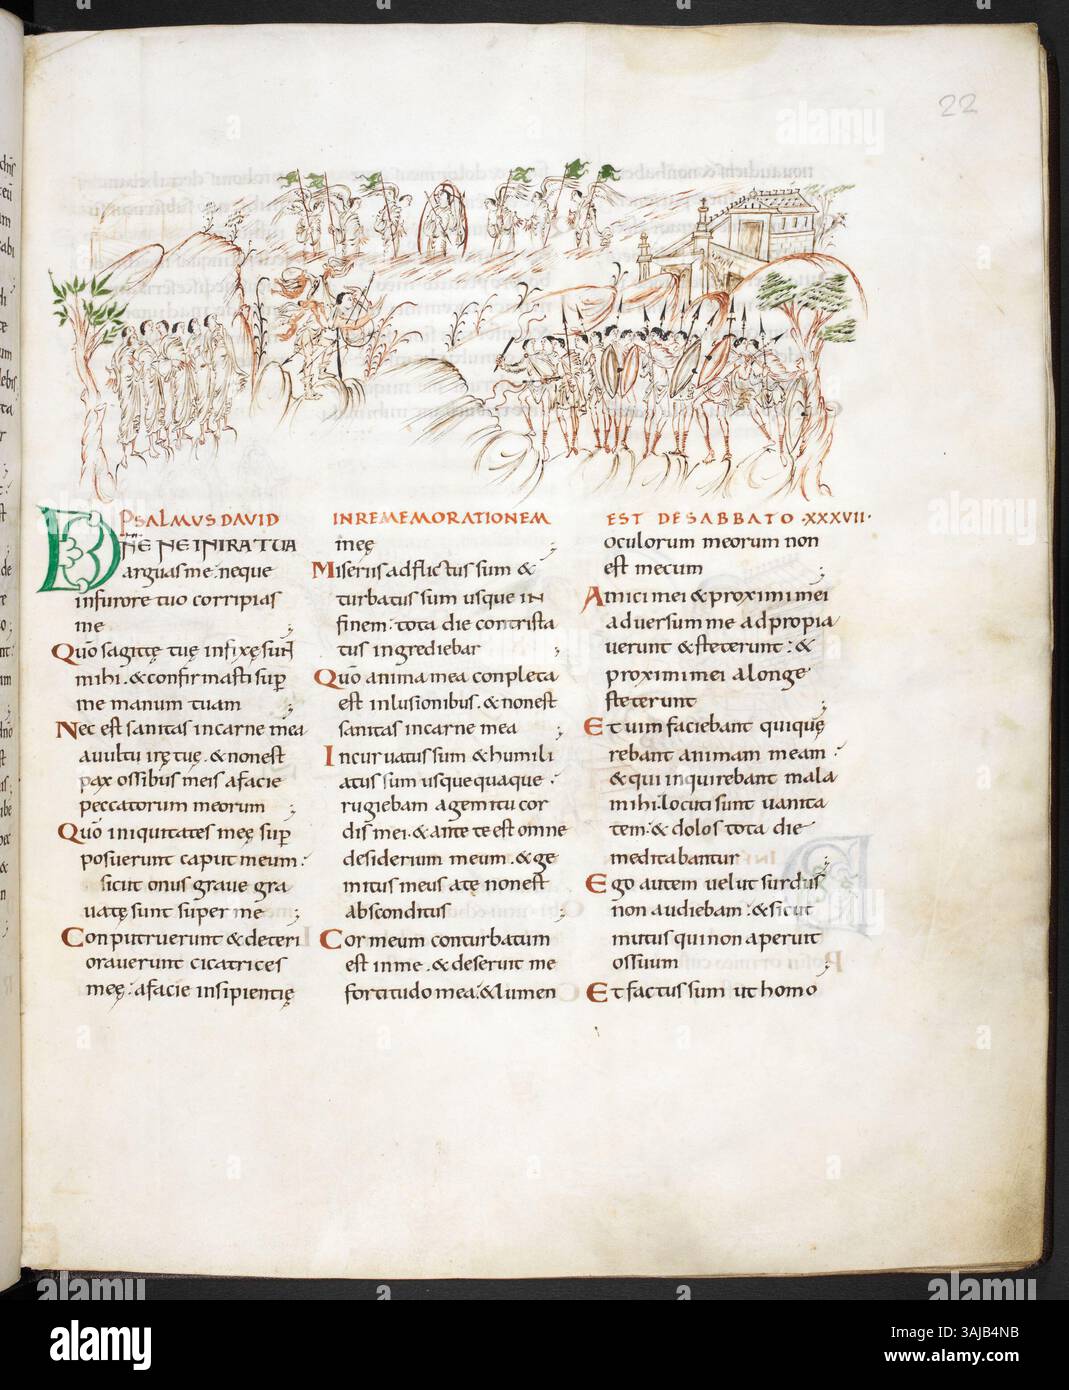 22
PSALMUS DAVID
DNE NE IN IRA TUA
arguas me. neque
in furore tuo corripias
me ;
Quō sagittę tuę infixę sun̄t
mihi. & confirmasti sup̄
me manum tuam ;
Nec est sanitas in carne mea
a vultu irę tuę. & non est
pax ossibus meis a facie
peccatorum meorum ;
Quō iniquitates meę sup̄
posuerunt caput meum:
sicut onus grave gra
vatę sunt super me ;
Conputruerunt & deteri
oraverunt cicatrices
meę: a facie insipientię
IN REMEMORATIONEM
meę ;
Miseriis adflictus sum &
turbatus sum usque in
finem: tota die contrista
tus ingrediebar ;
Quō anima mea conpleta
est inlusionibus. & non est
sanitas in carne mea ;
Incurvatus sum & humili
atus sum usquequaque.
rugiebam a gemitu cor
dis mei. & ante te est omne
desiderium meum. & ge
mitus meus a te non est
absconditus ;
Cor meum conturbatum
est in me. & deseruit me
fortitudo mea: & lumen
EST DE SABBATO ·XXXVII·
oculorum meorum non
est mecum ;
Amici mei & proximi mei
adversum me adpropia
verunt & steterunt: &
proximi mei a longe
steterunt ;
Et vim faciebant qui quę
rebant animam meam:
& qui inquirebant mala
mihi. locuti sunt vanita
tem: & dolos tota die
meditabantur ;
Ego autem velut surdus
non audiebam: & sicut
mutus qui non aperuit
os suum ;
Et factus sum ut homo
alamy
2AJB4NB
www.alamy.com